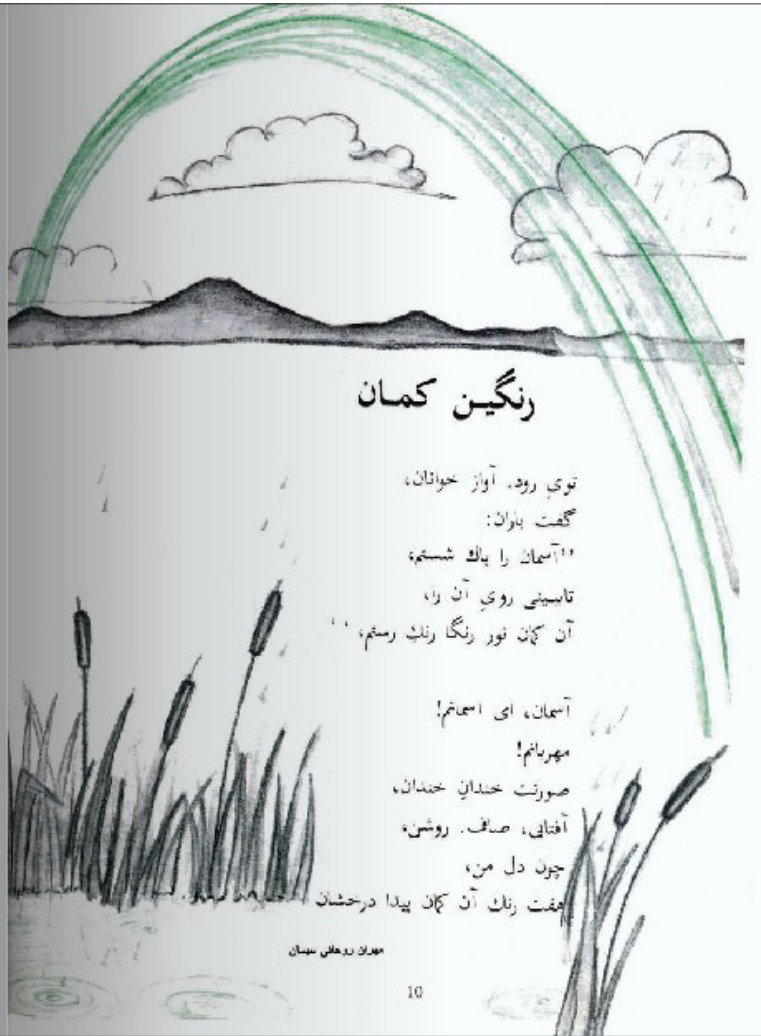 رنگین کمان
توي رود. آواز خوانان،
گفت باران:
"آسمان را باك شستم،
تاببینی رویِ آن را،
آن کمان نور رنگا رنكِ رستم، "
آسمان، ای اسمانم!
مهربانم!
صورتت خندانِ خندان،
آفتابی، صاف. روشن،
چون دل من،
هفت رنك آن کمان پیدا درخشان
مهران روحانی سیسان
10